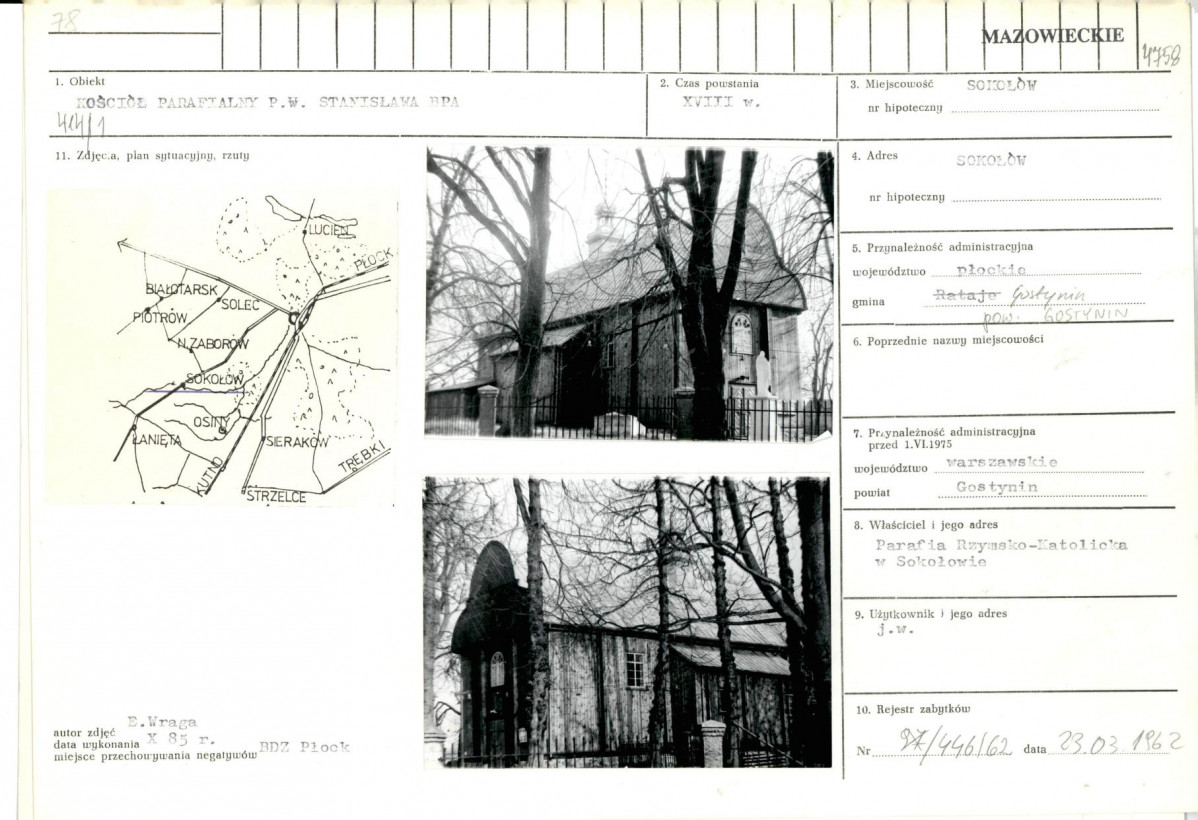 78
MAZOWIECKIE
4758
1. Obiekt
KOŚCIÓŁ PARAFIALNY P.W. STANISŁAWA BPA
414/1
2. Czas powstania
XVIII w.
3. Miejscowość SOKOŁÓW
nr hipoteczny
11. Zdjęcia, plan sytuacyjny, rzuty
LUCIEŃ
PŁOCK
BIAŁOTARSK
SOLEC
PIOTRÓW
N.ZABORÓW
SOKOŁÓW
OSINY
ŁANIĘTA
SIERAKÓW
KUTNO
TRĘBKI
STRZELCE
autor zdjęć E.Wraga
data wykonania X 85 r.
miejsce przechowywania negatywów BDZ Płock
4. Adres SOKOŁÓW
nr hipoteczny
5. Przynależność administracyjna
województwo płockie
gmina Rataje Gostynin
pow. GOSTYNIN
6. Poprzednie nazwy miejscowości
7. Przynależność administracyjna
przed 1.VI.1975
województwo warszawskie
powiat Gostynin
8. Właściciel i jego adres
Parafia Rzymsko-Katolicka
w Sokołowie
9. Użytkownik i jego adres
j.w.
10. Rejestr zabytków
Nr 27/446/62 data 23.03.1962